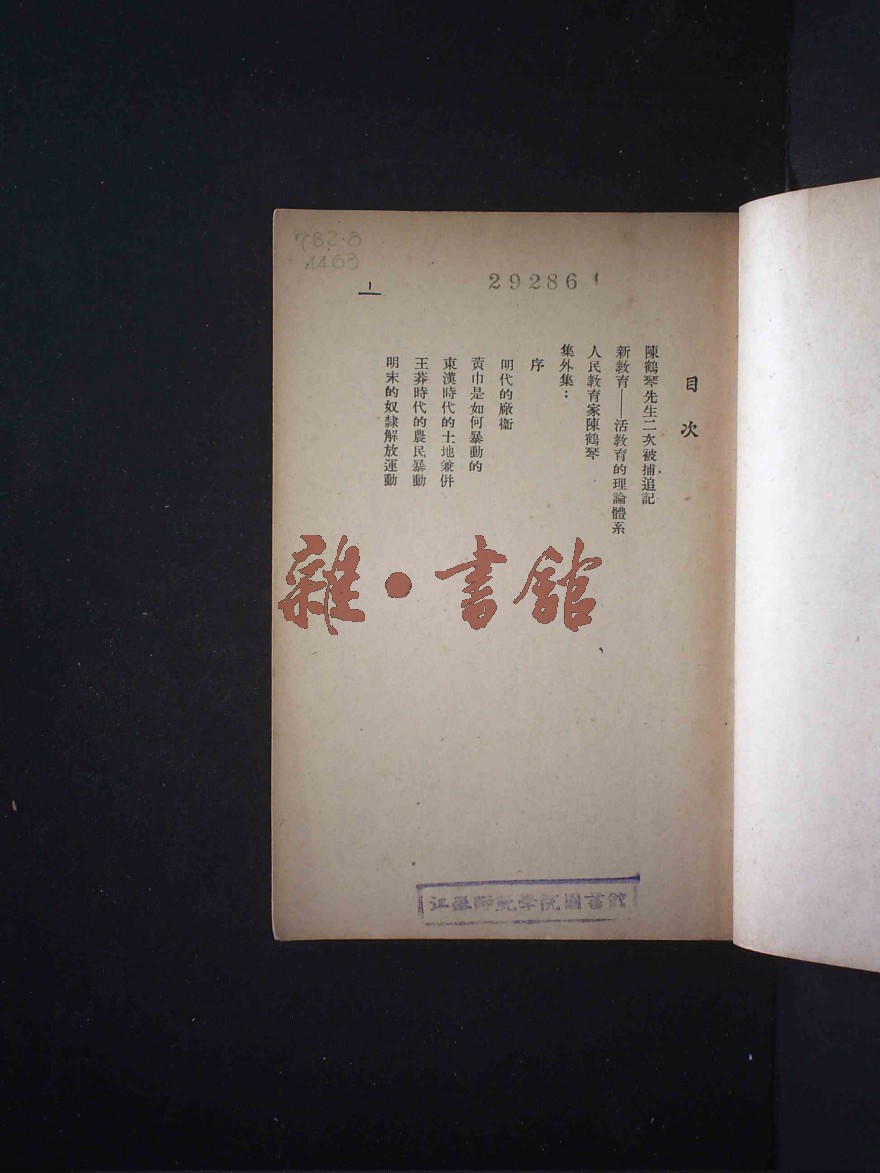 目次
陳鶴琴先生二次被捕追記
新教育——活教育的理論體系
人民教育家陳鶴琴
集外集：
序
明代的廠衞
黃巾是如何暴動的
東漢時代的土地兼併
王莽時代的農民暴動
明末的奴隸解放運動
1
29286
782·8
4463
雜·書館
江蘇師範學院圖書館